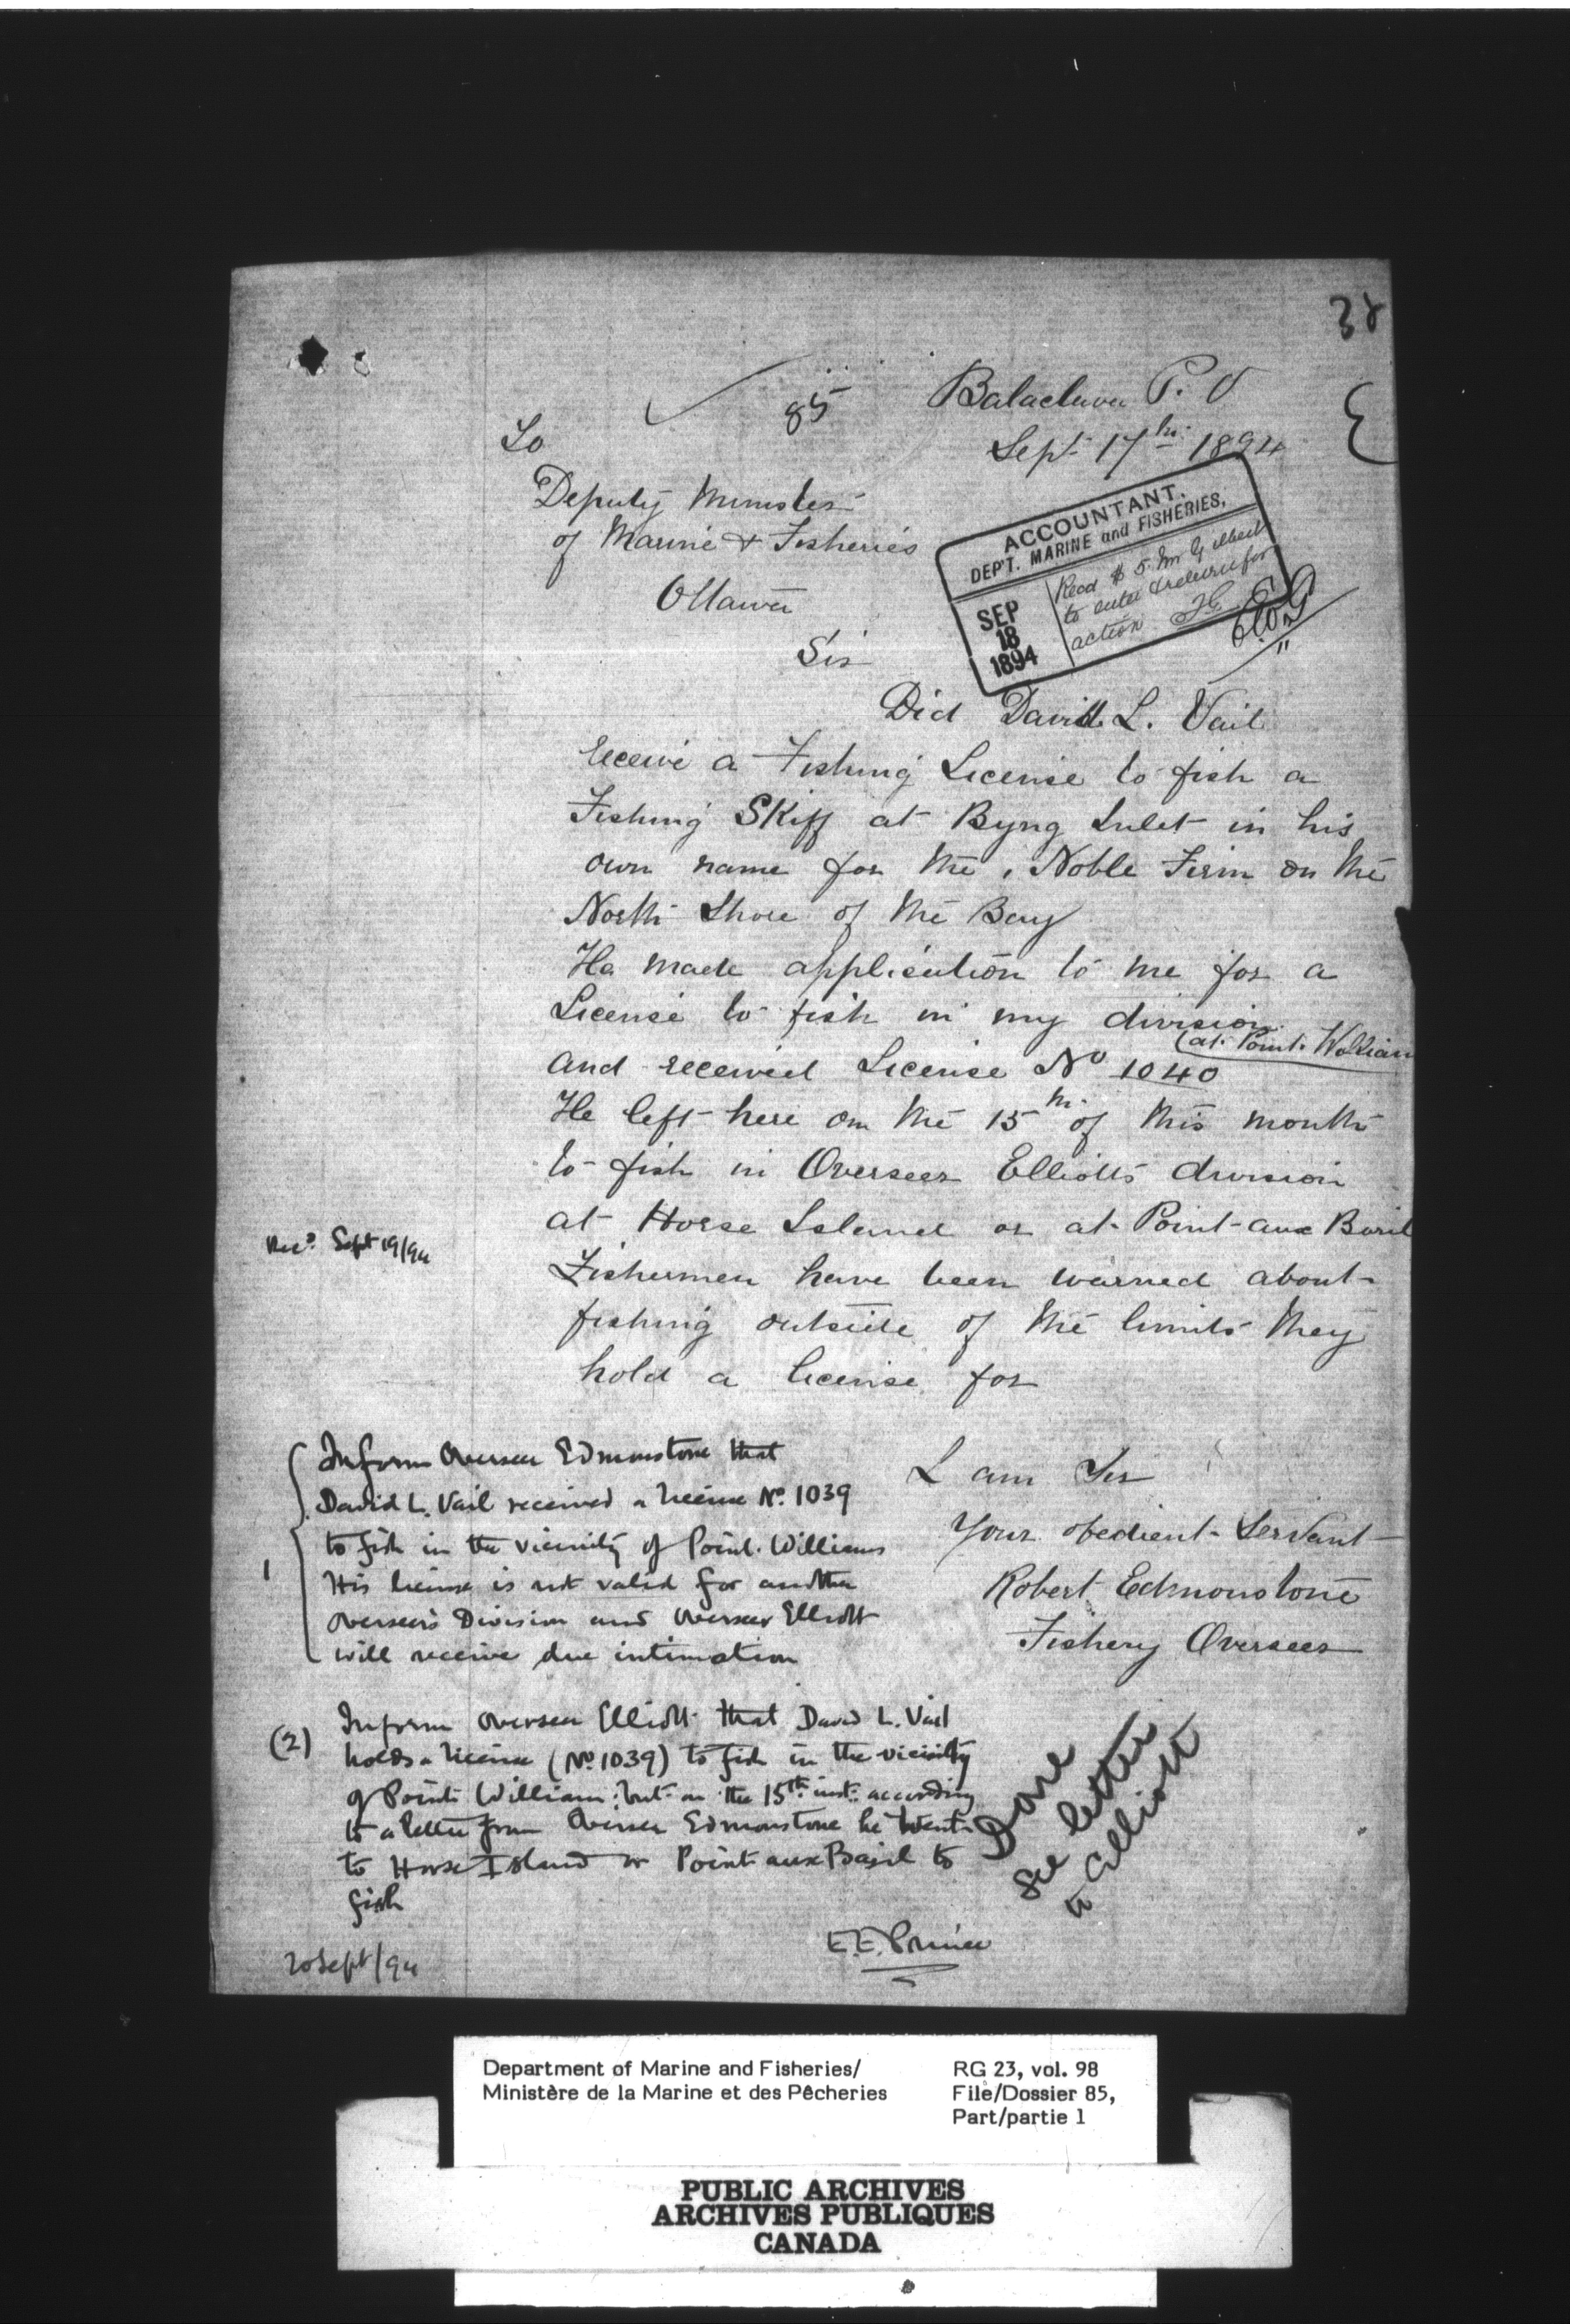 38
85
Balaclava P. O
Sept 17th 1894
To
Deputy Minister
of Marine & Fisheries
Ottawa
ACCOUNTANT.
DEP'T. MARINE and FISHERIES,
SEP
18
1894
Read $5. Mr Gilbert
to enter & return for
action
Sir
Did David L. Vail
receive a Fishing License to fish a
Fishing Skiff at Byng Inlet in his
own name for the Noble Firm on the
North Shore of the Bay
He made application to me for a
License to fish in my division
(at Point William
and received License No 1040
He left here on the 15th of this month
to fish in Overseer Elliotts division
at Horse Island or at Point aux Baril
Recd Sept 19/94
Fishermen have been warned about
fishing outside of the limits they
hold a license for
I am Sir
Your obedient Servant
Robert Edmonstone
Fishery Overseer
1
Inform Overseer Edmonstone that
David L. Vail received a license No. 1039
to fish in the vicinity of Point Williams
His license is not valid for another
Overseers Division and Overseer Elliott
will receive due intimation
(2)
Inform Overseer Elliott that David L. Vail
holds a license (No 1039) to fish in the vicinity
of Point William: but on the 15th inst: according
to a letter from Overseer Edmonstone he went
to Horse Island or Point aux Baril to
fish
Done
See letter
to Elliott
E.E. Prince
20 Sept/94
Department of Marine and Fisheries/
Ministère de la Marine et des Pêcheries
RG 23, vol. 98
File/Dossier 85,
Part/partie 1
PUBLIC ARCHIVES
ARCHIVES PUBLIQUES
CANADA